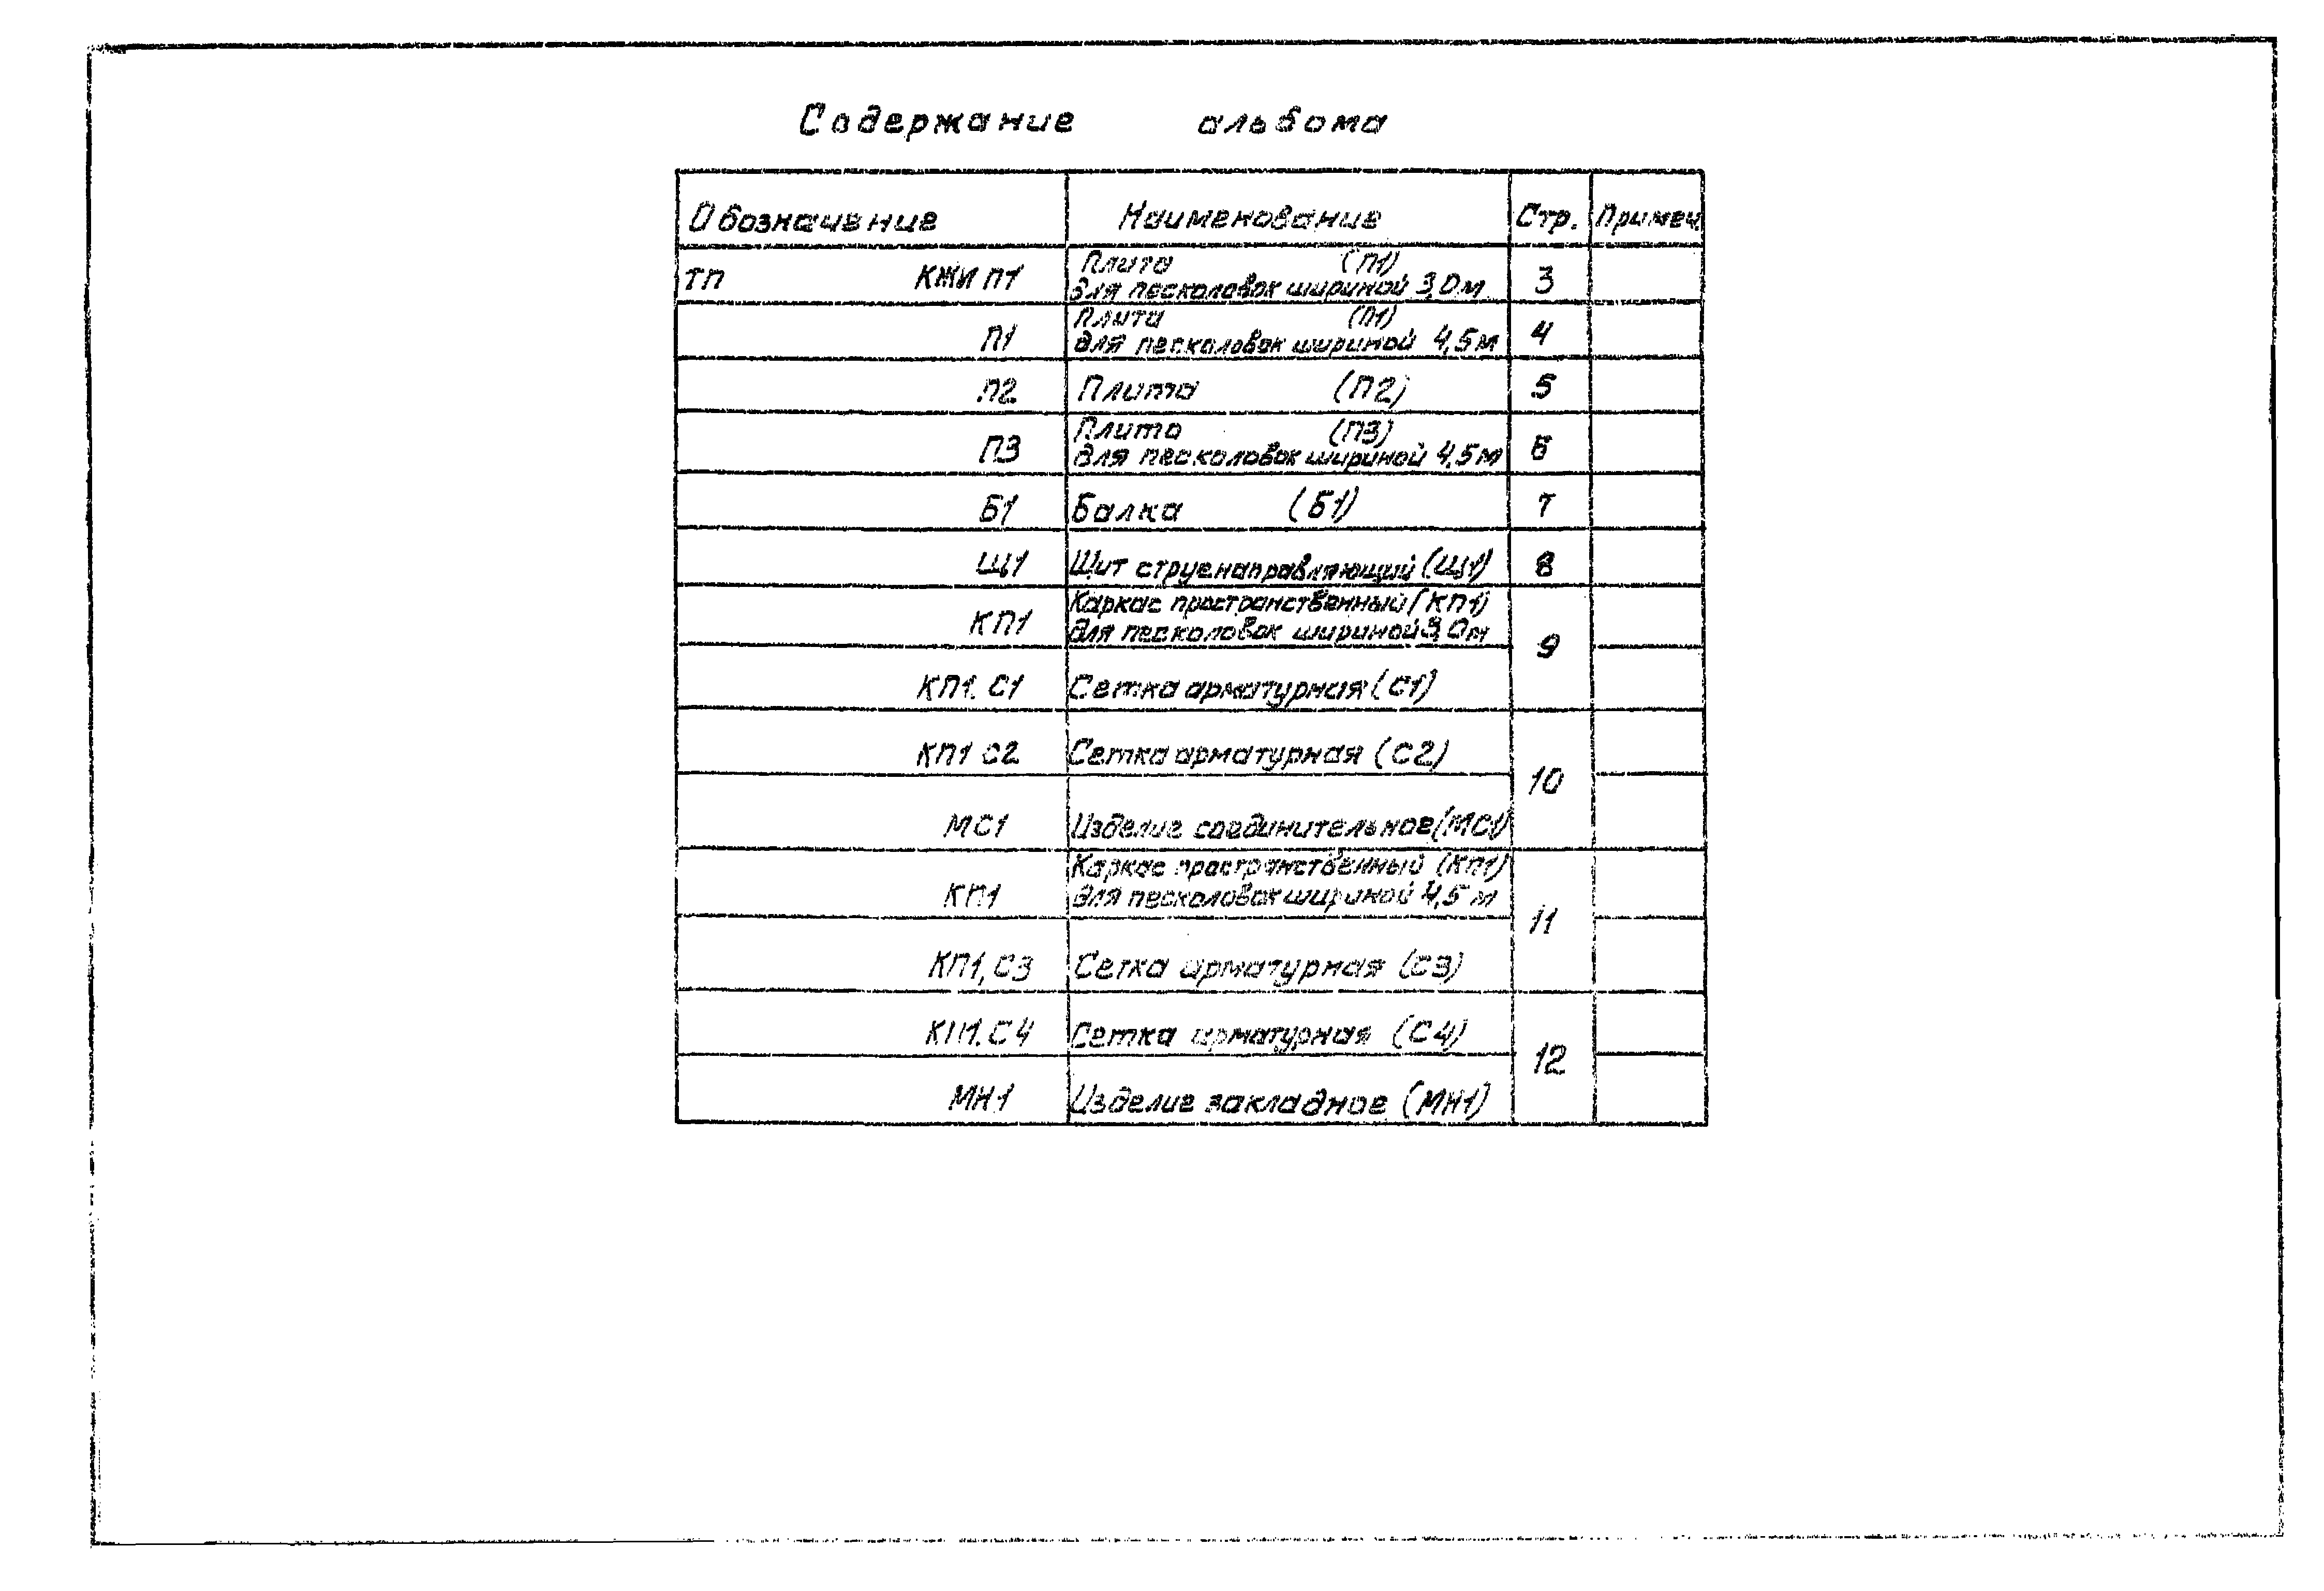 Содержание альбома
Обозначение Наименование Стр. Примеч.
ТП КЖИ П1 Плита (П1) 3
для песколовок шириной 3,0м
П1 Плита (П1) 4
для песколовок шириной 4,5м
П2 Плита (П2) 5
П3 Плита (П3) 6
для песколовок шириной 4,5м
Б1 Балка (Б1) 7
Щ1 Щит струенаправляющий (Щ1) 8
КП1 Каркас пространственный (КП1) 9
для песколовок шириной 3,0м
КП1. С1 Сетка арматурная (С1)
КП1 С2 Сетка арматурная (С2) 10
МС1 Изделие соединительное (МС1)
КП1 Каркас пространственный (КП1) 11
для песколовок шириной 4,5м
КП1,С3 Сетка арматурная (С3)
КП1.С4 Сетка арматурная (С4) 12
МН1 Изделие закладное (МН1)